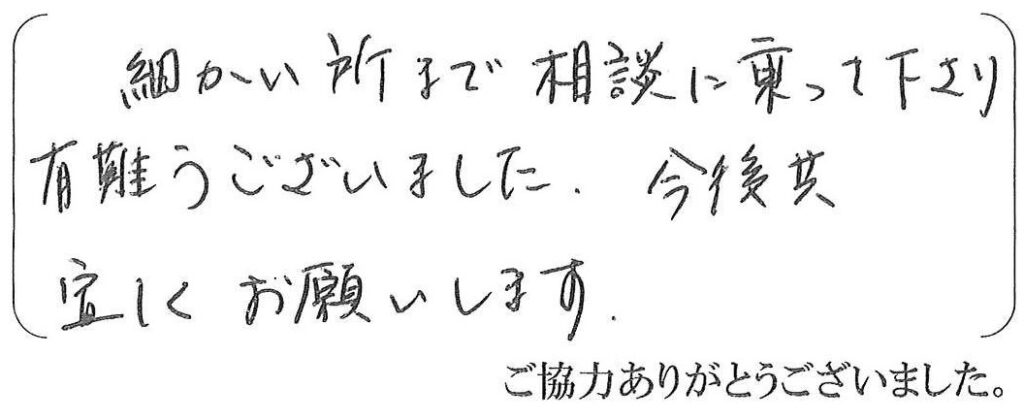 細かい所まで相談に乗って下さり
有難うございました. 今後共
宜しくお願いします.
ご協力ありがとうございました。